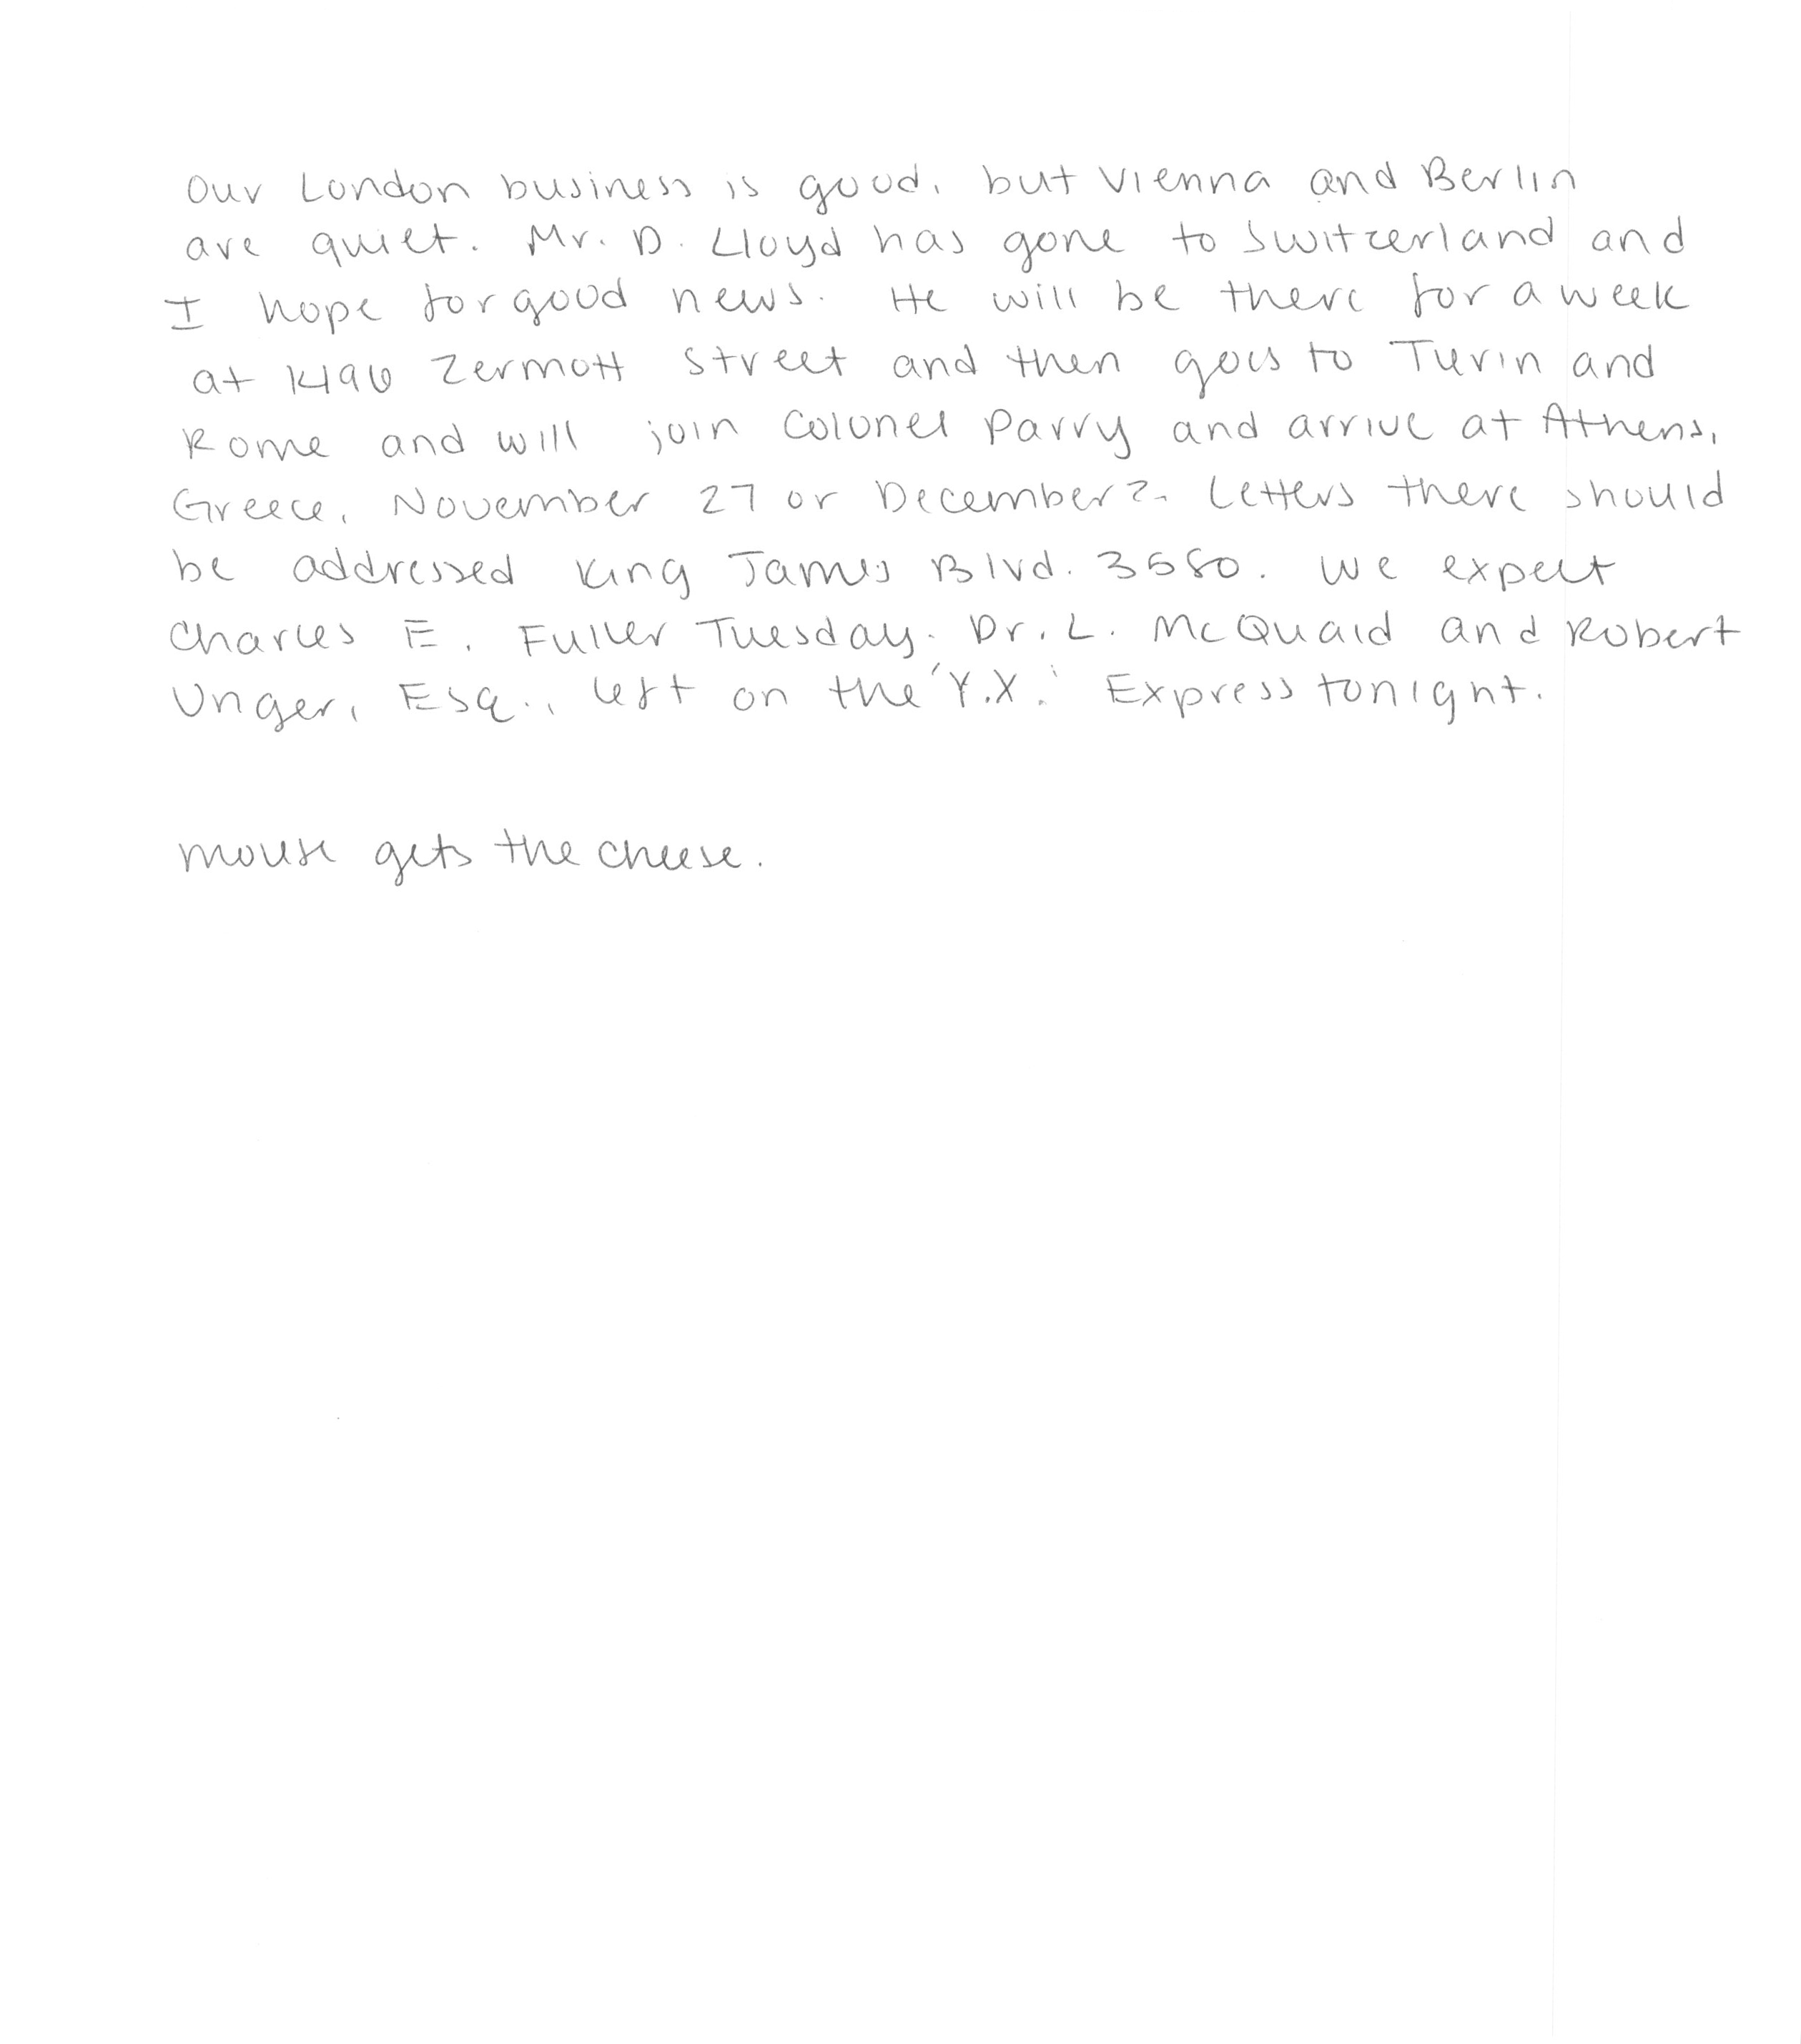 Our London business is good, but Vienna and Berlin
are quiet. Mr. D. Lloyd has gone to Switzerland and
I hope for good news. He will be there for a week
at 1496 Zermott Street and then goes to Turin and
Rome and will join Colonel Parry and arrive at Athens,
Greece, November 27 or December 2. Letters there should
be addressed King James Blvd. 3580. We expect
Charles E. Fuller Tuesday. Dr. L. McQuaid and Robert
Unger, Esq., left on the 'Y.X.' Express tonight.
mouse gets the cheese.